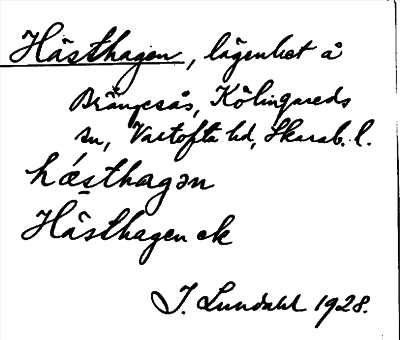 Hästhagen, lägenhet å
Brängesås, Kölingareds
sn, Vartofta hd, Skarab. l.
hǽsthagən
Hästhagen ek
J. Lundahl 1928.